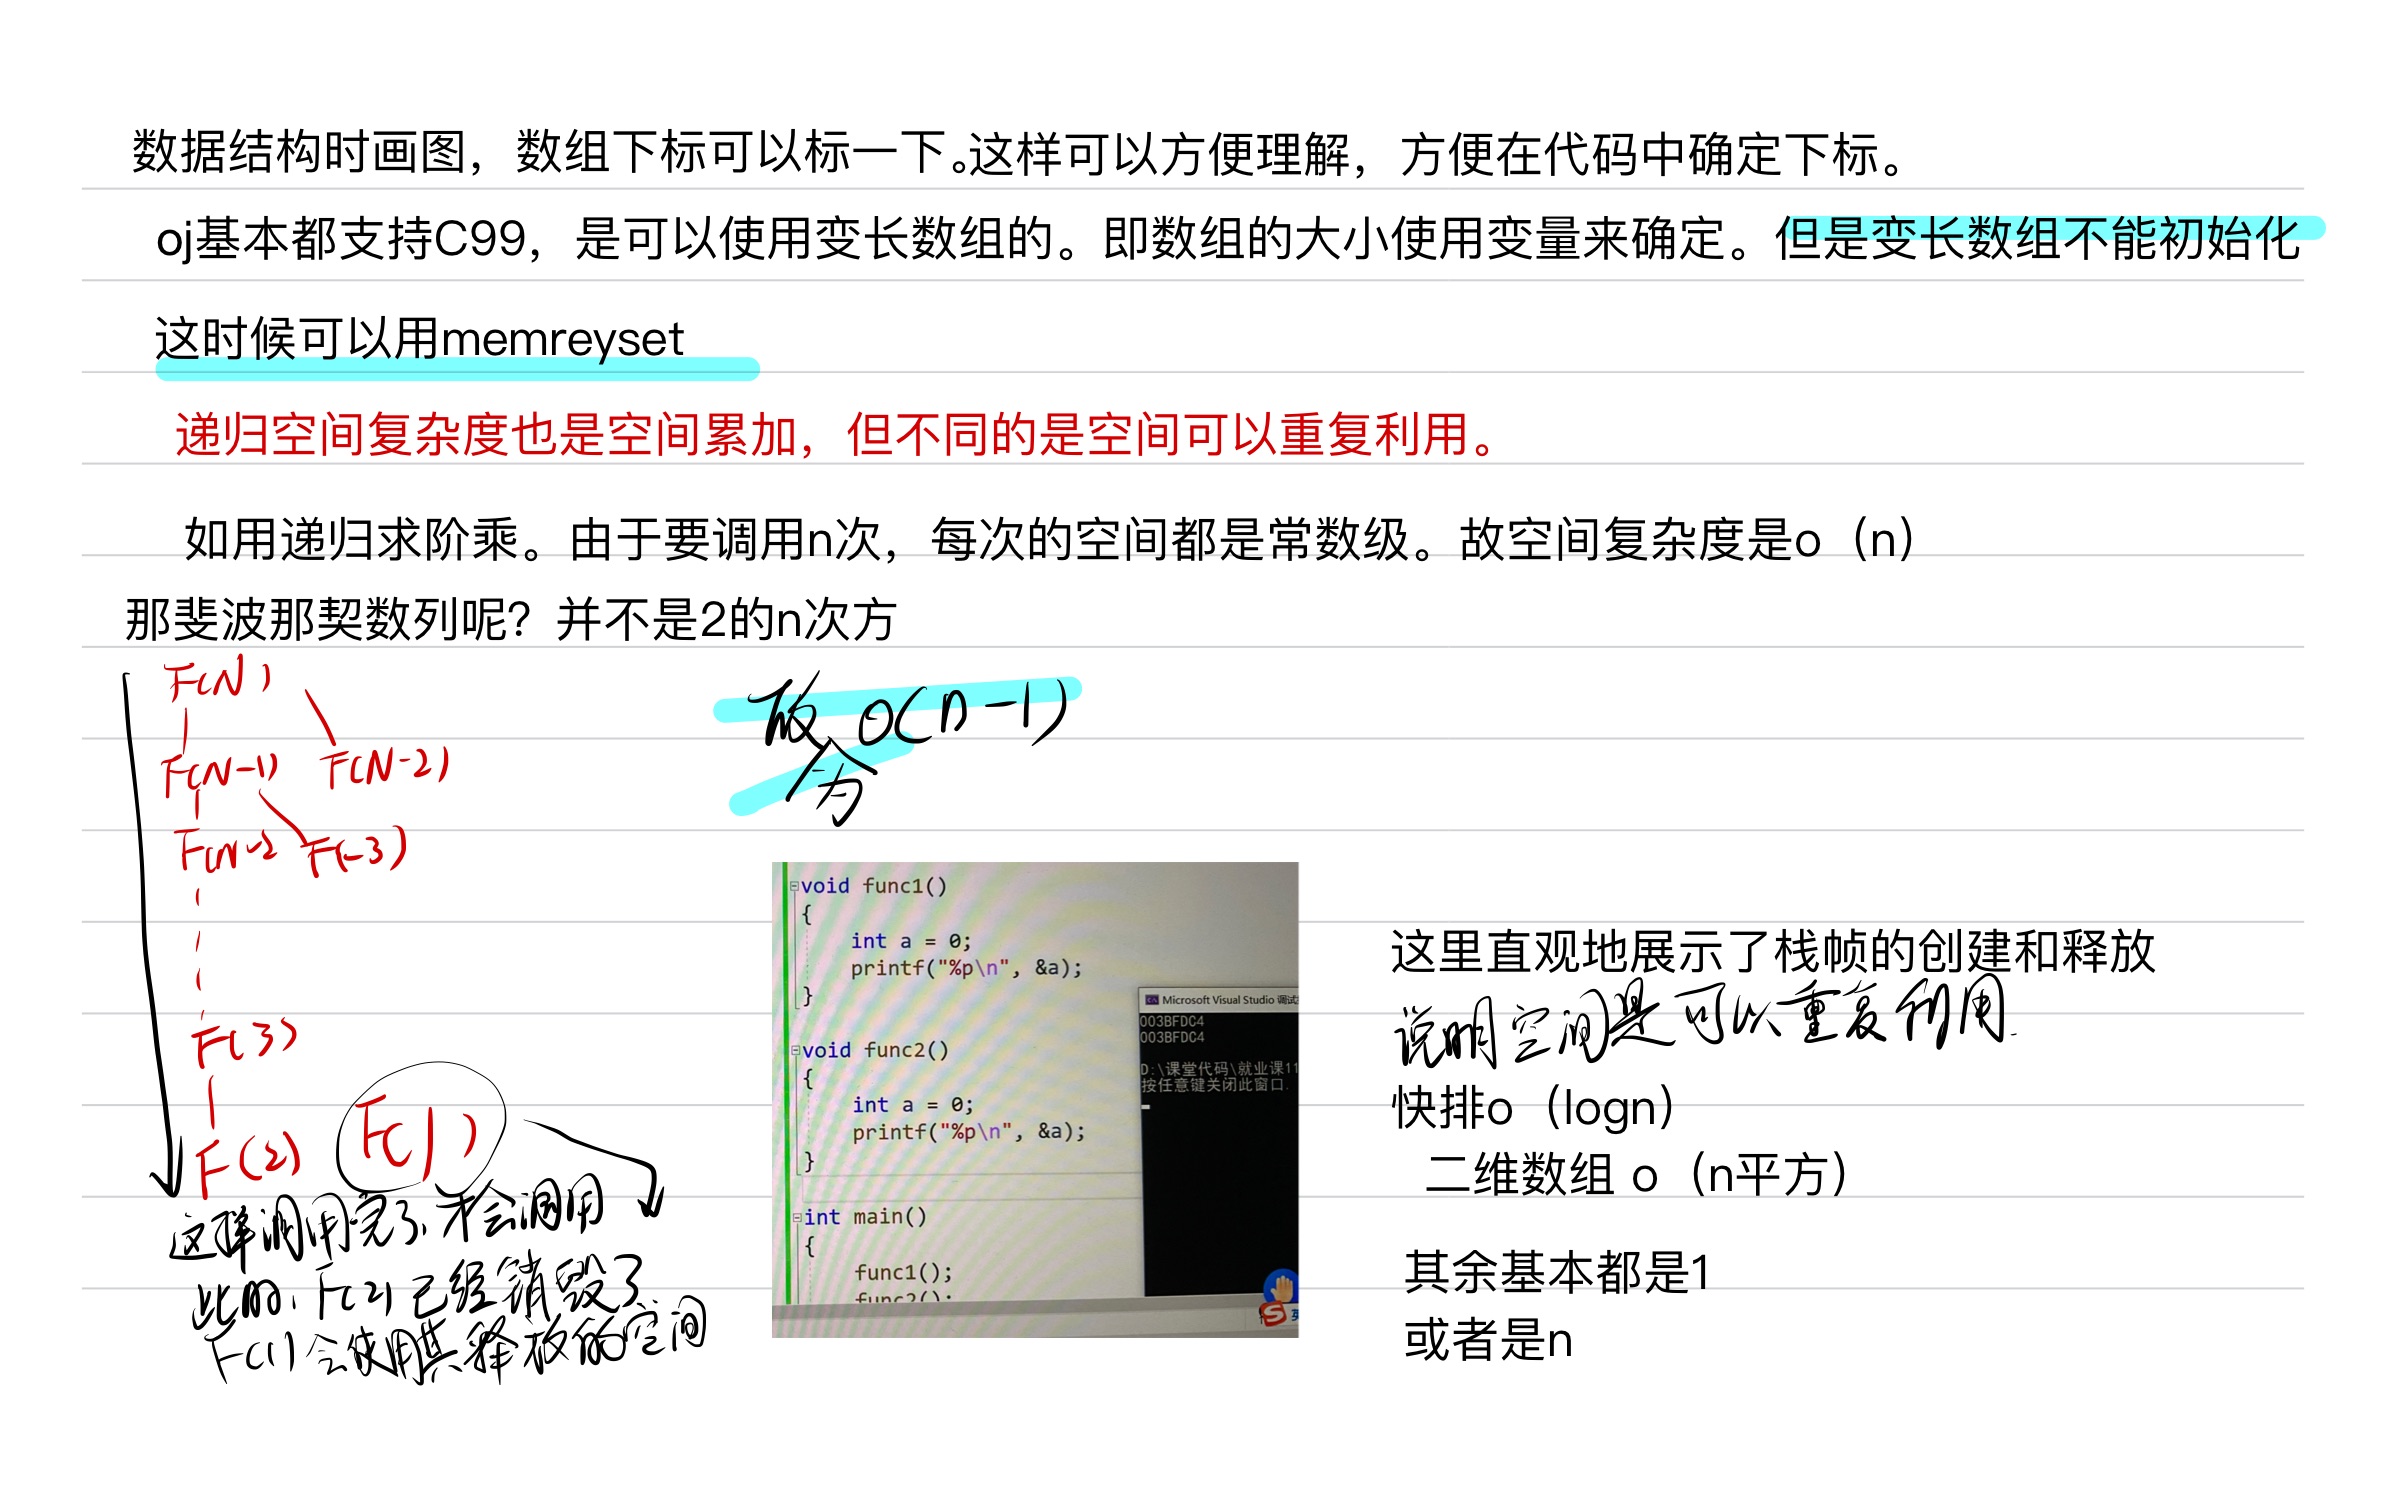 数据结构时画图，数组下标可以标一下。这样可以方便理解，方便在代码中确定下标。
oj基本都支持C99，是可以使用变长数组的。即数组的大小使用变量来确定。但是变长数组不能初始化
这时候可以用memreyset
递归空间复杂度也是空间累加，但不同的是空间可以重复利用。
如用递归求阶乘。由于要调用n次，每次的空间都是常数级。故空间复杂度是o（n）
那斐波那契数列呢？并不是2的n次方
F(N)
F(N-1) F(N-2)
F(N-2 F(-3)
F(3)
F(2) F(1)
这样调用完了,才会调用
此时,F(2)已经销毁了
F(1)会使用其释放的空间
故 O(n-1)
为
void func1()
{
int a = 0;
printf("%p\n", &a);
}
void func2()
{
int a = 0;
printf("%p\n", &a);
}
int main()
{
func1();
func2();
Microsoft Visual Studio 调试
003BFDC4
003BFDC4
D:\课堂代码\就业课11
按任意键关闭此窗口.
这里直观地展示了栈帧的创建和释放
说明空间是可以重复利用.
快排o（logn）
二维数组 o（n平方）
其余基本都是1
或者是n